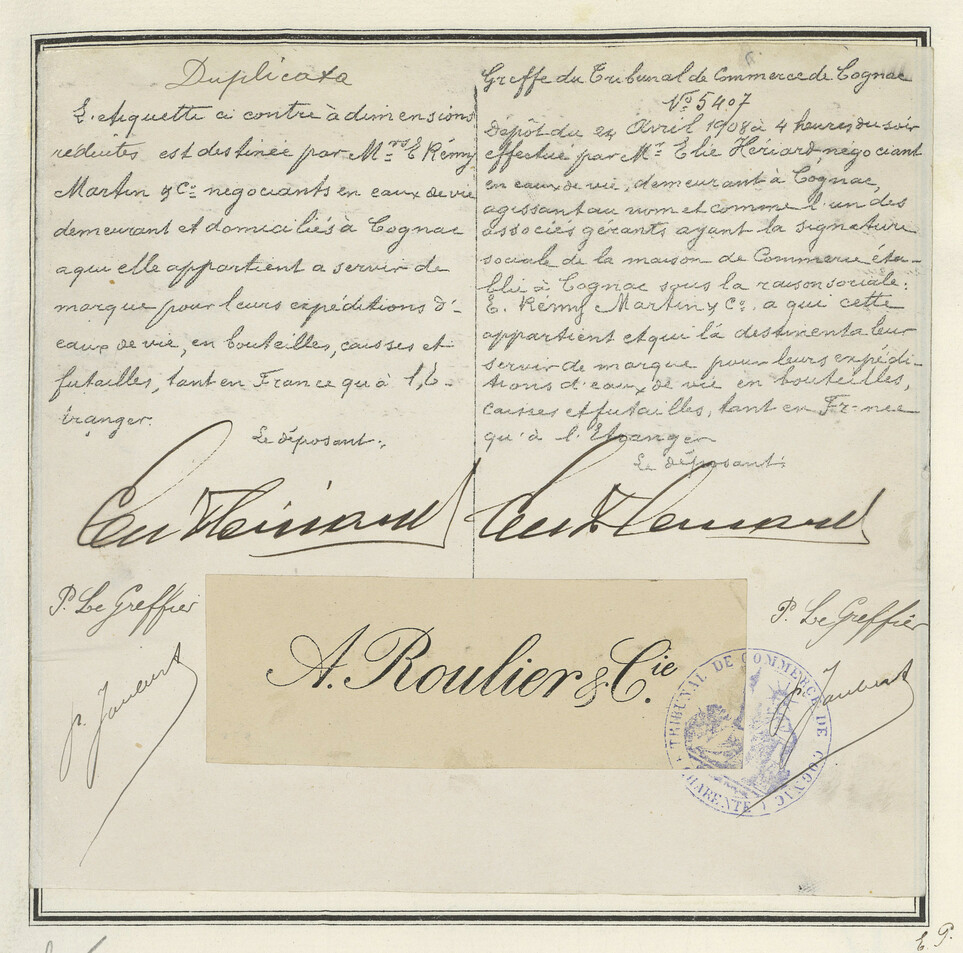 Duplicata
L'etiquette ci contre à dimensions
réduites est destinée par Mrs E Rémy
Martin & Co negociants en eaux de vie
demeurant et domiciliés à Cognac
a qui elle appartient a servir de
marque pour leurs expéditions d'-
eaux de vie, en bouteilles, caisses et
futailles, tant en France qu'à l'é-
tranger.
Le déposant:
P. Le Greffier
p. Joubert
Greffe du Tribunal de Commerce de Cognac
No 5407
Dépôt du 24 Avril 1908 à 4 heures du soir
effectué par Mr Elie Hériard, négociant
en eaux de vie, demeurant à Cognac,
agissant au nom et comme l'un des
associés gérants ayant la signature
sociale de la maison de Commerce éta-
blie à Cognac sous la raison sociale:
E. Rémy Martin & Co. a qui cette
appartient et qui la destinent a leur
servir de marque pour leurs expédi-
tions d'eaux de vie en bouteilles,
caisses et futailles, tant en Fr-nce
qu'à l'Etranger
Le déposant:
P. Le Greffier
p. Joubert
A. Roulier & Cie.
TRIBUNAL DE COMMERCE DE COGNAC
CHARENTE
E. P.